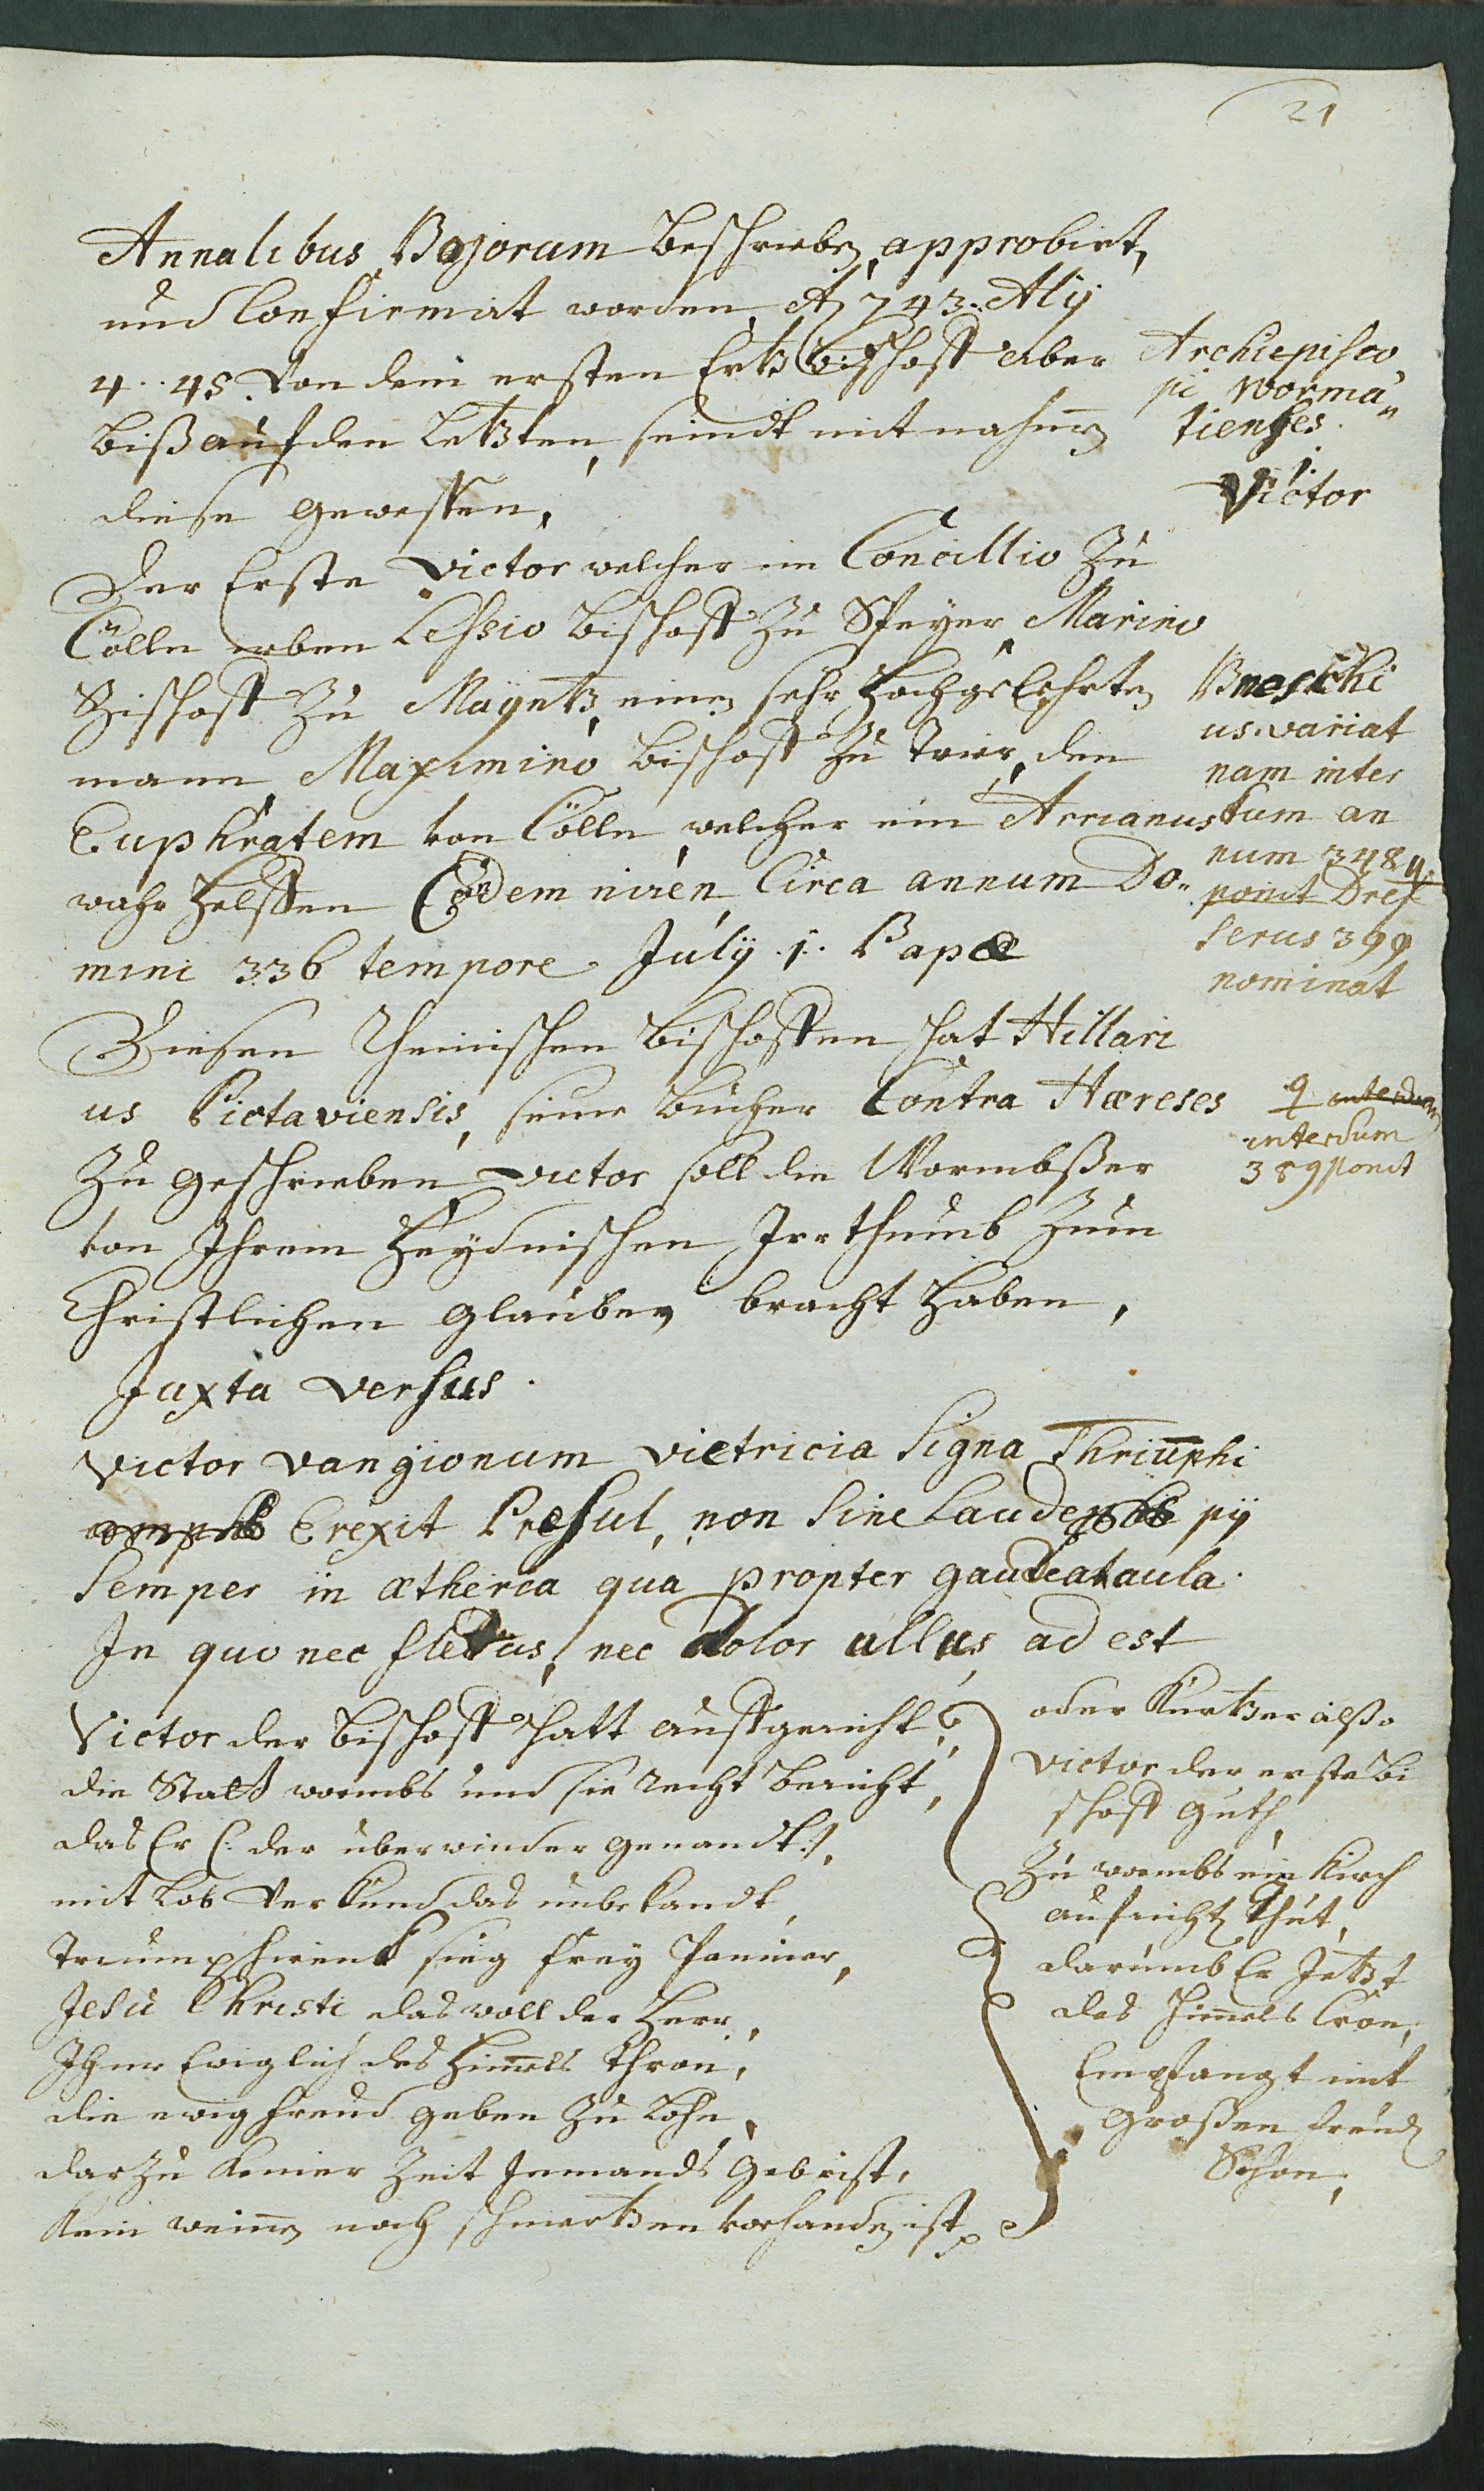 21
Annalibus Bojorum beschrieben, approbirt,
und Confirmat worden, Aō 743. Alij
4..48. Von dem ersten Ertzbischoff aber
biß auf den letzten, seindt mit nahmen
diese gewessen,
Archiepisco„
pi Worma„
tienses.
1.
Victor
Der Erste Victor welcher im Concillio zu
Cölln neben Lessio bischoff zu Speyer, Marino
Bischoff zu Mayntz, einen sehr hochgelehrten
mann, Maximino bischoff zu Trier, den
Euphratem von Cölln, welcher ein Arrianus
wahr helffen Condemniren, Circa annum Do„
mini 336 tempore July .1. Papæ
Bruschi
us variat
nam inter
dum an
num 348 q
ponit Dres
serus 399
nominat
Diesen Rheinischen bischoffen hat Hillari
us Pictaviensis, seine bücher Contra Hæreses
zu geschrieben, Victor soll die Wormbßer
von Ihrem Heydnischen Irrthumb zum
Christlichen glauben bracht haben,
q interdum
interdum
389 ponit
Juxta versus.
Victor Vangionum Victricia Signa Thriumphi
Erexit Presul, non Sine Laude pij
Semper in ætherea qua propter gaudeat aula.
In quo nec fletus, nec dolor ullus ad est
Victor der bischoff hatt auffgericht,
die Statt wormbs und sie recht bericht,
das Er (: der überwinder genandt :),
mit lob verkünd das unbekandt,
Triumphirent sieg frey Panier,
Jesu Christi, das woll der Herr,
Ihme Ewiglich des Himmels thron,
die ewig freud geben zu lohn,
darzu keiner zeit Jemands gebrist,
kein weinen noch schmertzen vorhanden ist
oder kurtzer alßo
Victor der erste bi
schoff guth,
zu wormbs ein kirch
aufrichten thut,
darumb Er Jetzt
des himmels Cron,
Empfangt mit
großen freuden
Schon,